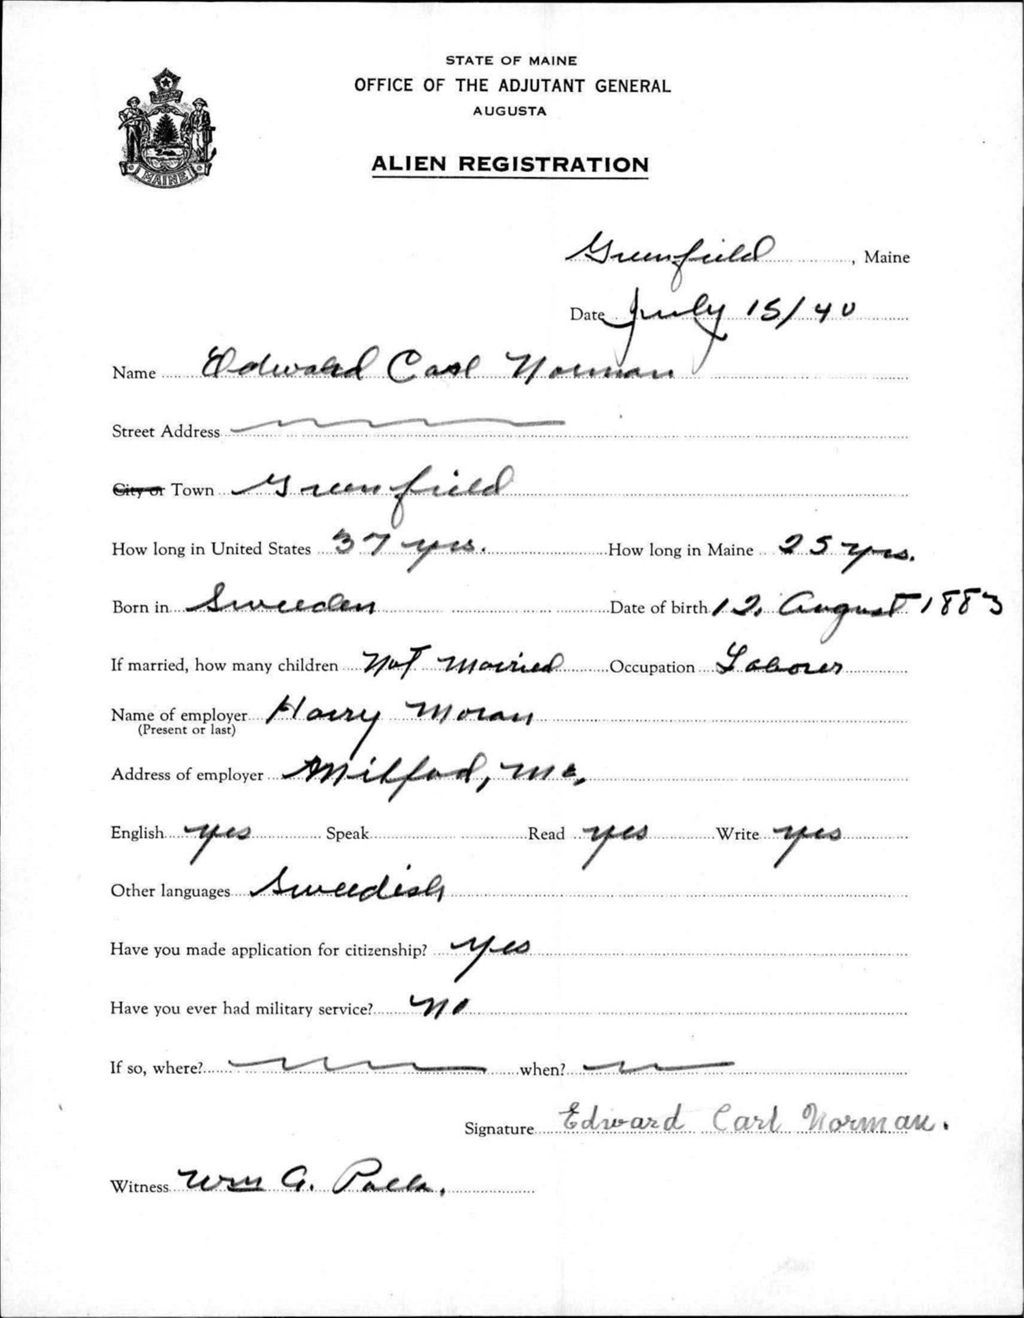 STATE OF MAINE
OFFICE OF THE ADJUTANT GENERAL
AUGUSTA
ALIEN REGISTRATION
MAINE
Greenfield, Maine
Date July 15/40
Name Edward Carl Norman
Street Address
City or Town Greenfield
How long in United States 37 yrs. How long in Maine 25 yrs.
Born in Sweeden Date of birth 12. August 1883
If married, how many children Not Married Occupation Laborer
Name of employer Harry Moran
(Present or last)
Address of employer Milford, Me.
English yes Speak Read yes Write yes
Other languages Sweedish
Have you made application for citizenship? yes
Have you ever had military service? No
If so, where? when?
Signature Edward Carl Norman.
Witness Wm G.